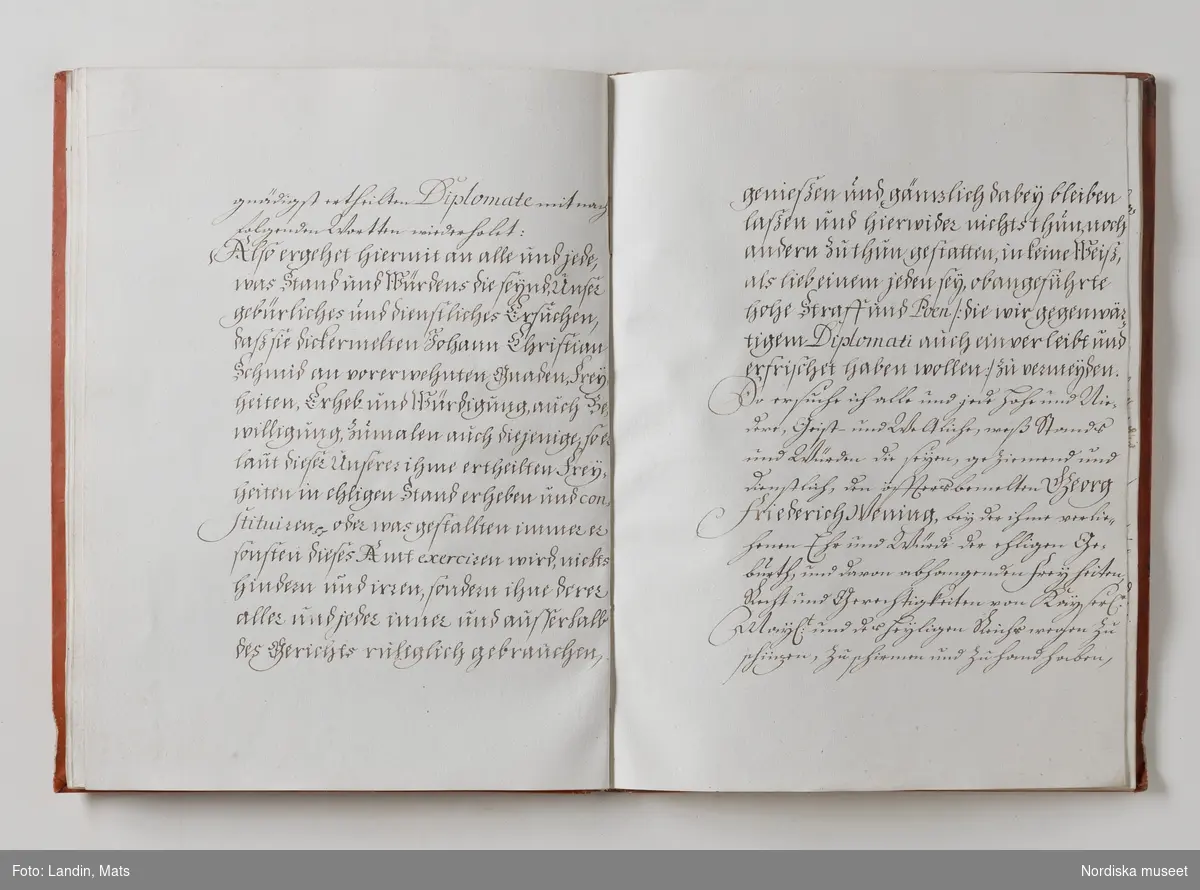 gnädigst ertheilten Diplomate mit nach
folgenden Wortten wiederholt:
Also ergehet hiermit an alle und jede,
was Stand und Würdens die seynd, Unser
gebürliches und dienstliches Ersuchen,
daß sie dickermelten Johann Christian
Schmid an vorerwehnten Gnaden, Frey-
heiten, Erheb und Würdigung, auch Be-
willigung, zumalen auch diejenige, so er
laut dieser Unserer ihme ertheilten Frey-
heiten in ehligen Stand erheben und con-
stituiren, oder was gestallten immer er
sonsten dieses Amt exerciren wird, nichts
hindern und irren, sondern ihne derer
aller und jeder inner und ausserhalb
des Gerichts ruhiglich gebrauchen,
genießen und gänzlich dabey bleiben
laßen und hierwider nichts thun, noch
andern zu thun gestatten, in keine Weiß,
als lieb einem jeden sey, obangeführte
hohe Straff und Poen /: die wir gegenwär-
tigem Diplomati auch einverleibt und
erfrischet haben wollen :/ zu vermeyden.
So ersuche ich alle und jede Hohe und Nie-
dere, Geist- und Weltliche, weß Stands
und Würden die seyen, geziemend und
dienstlich, den öffters bemelten Georg
Friederich Wening, bey der ihme verlie-
henen Ehr und Würde der ehligen Ge-
burth, und davon abhangenden Freyheiten,
Recht und Gerechtigkeiten von Kayserl:
Mayt: und des heyligen Reichs wegen zu
schüzen, zu schirmen und zu handhaben,
Foto: Landin, Mats
Nordiska museet